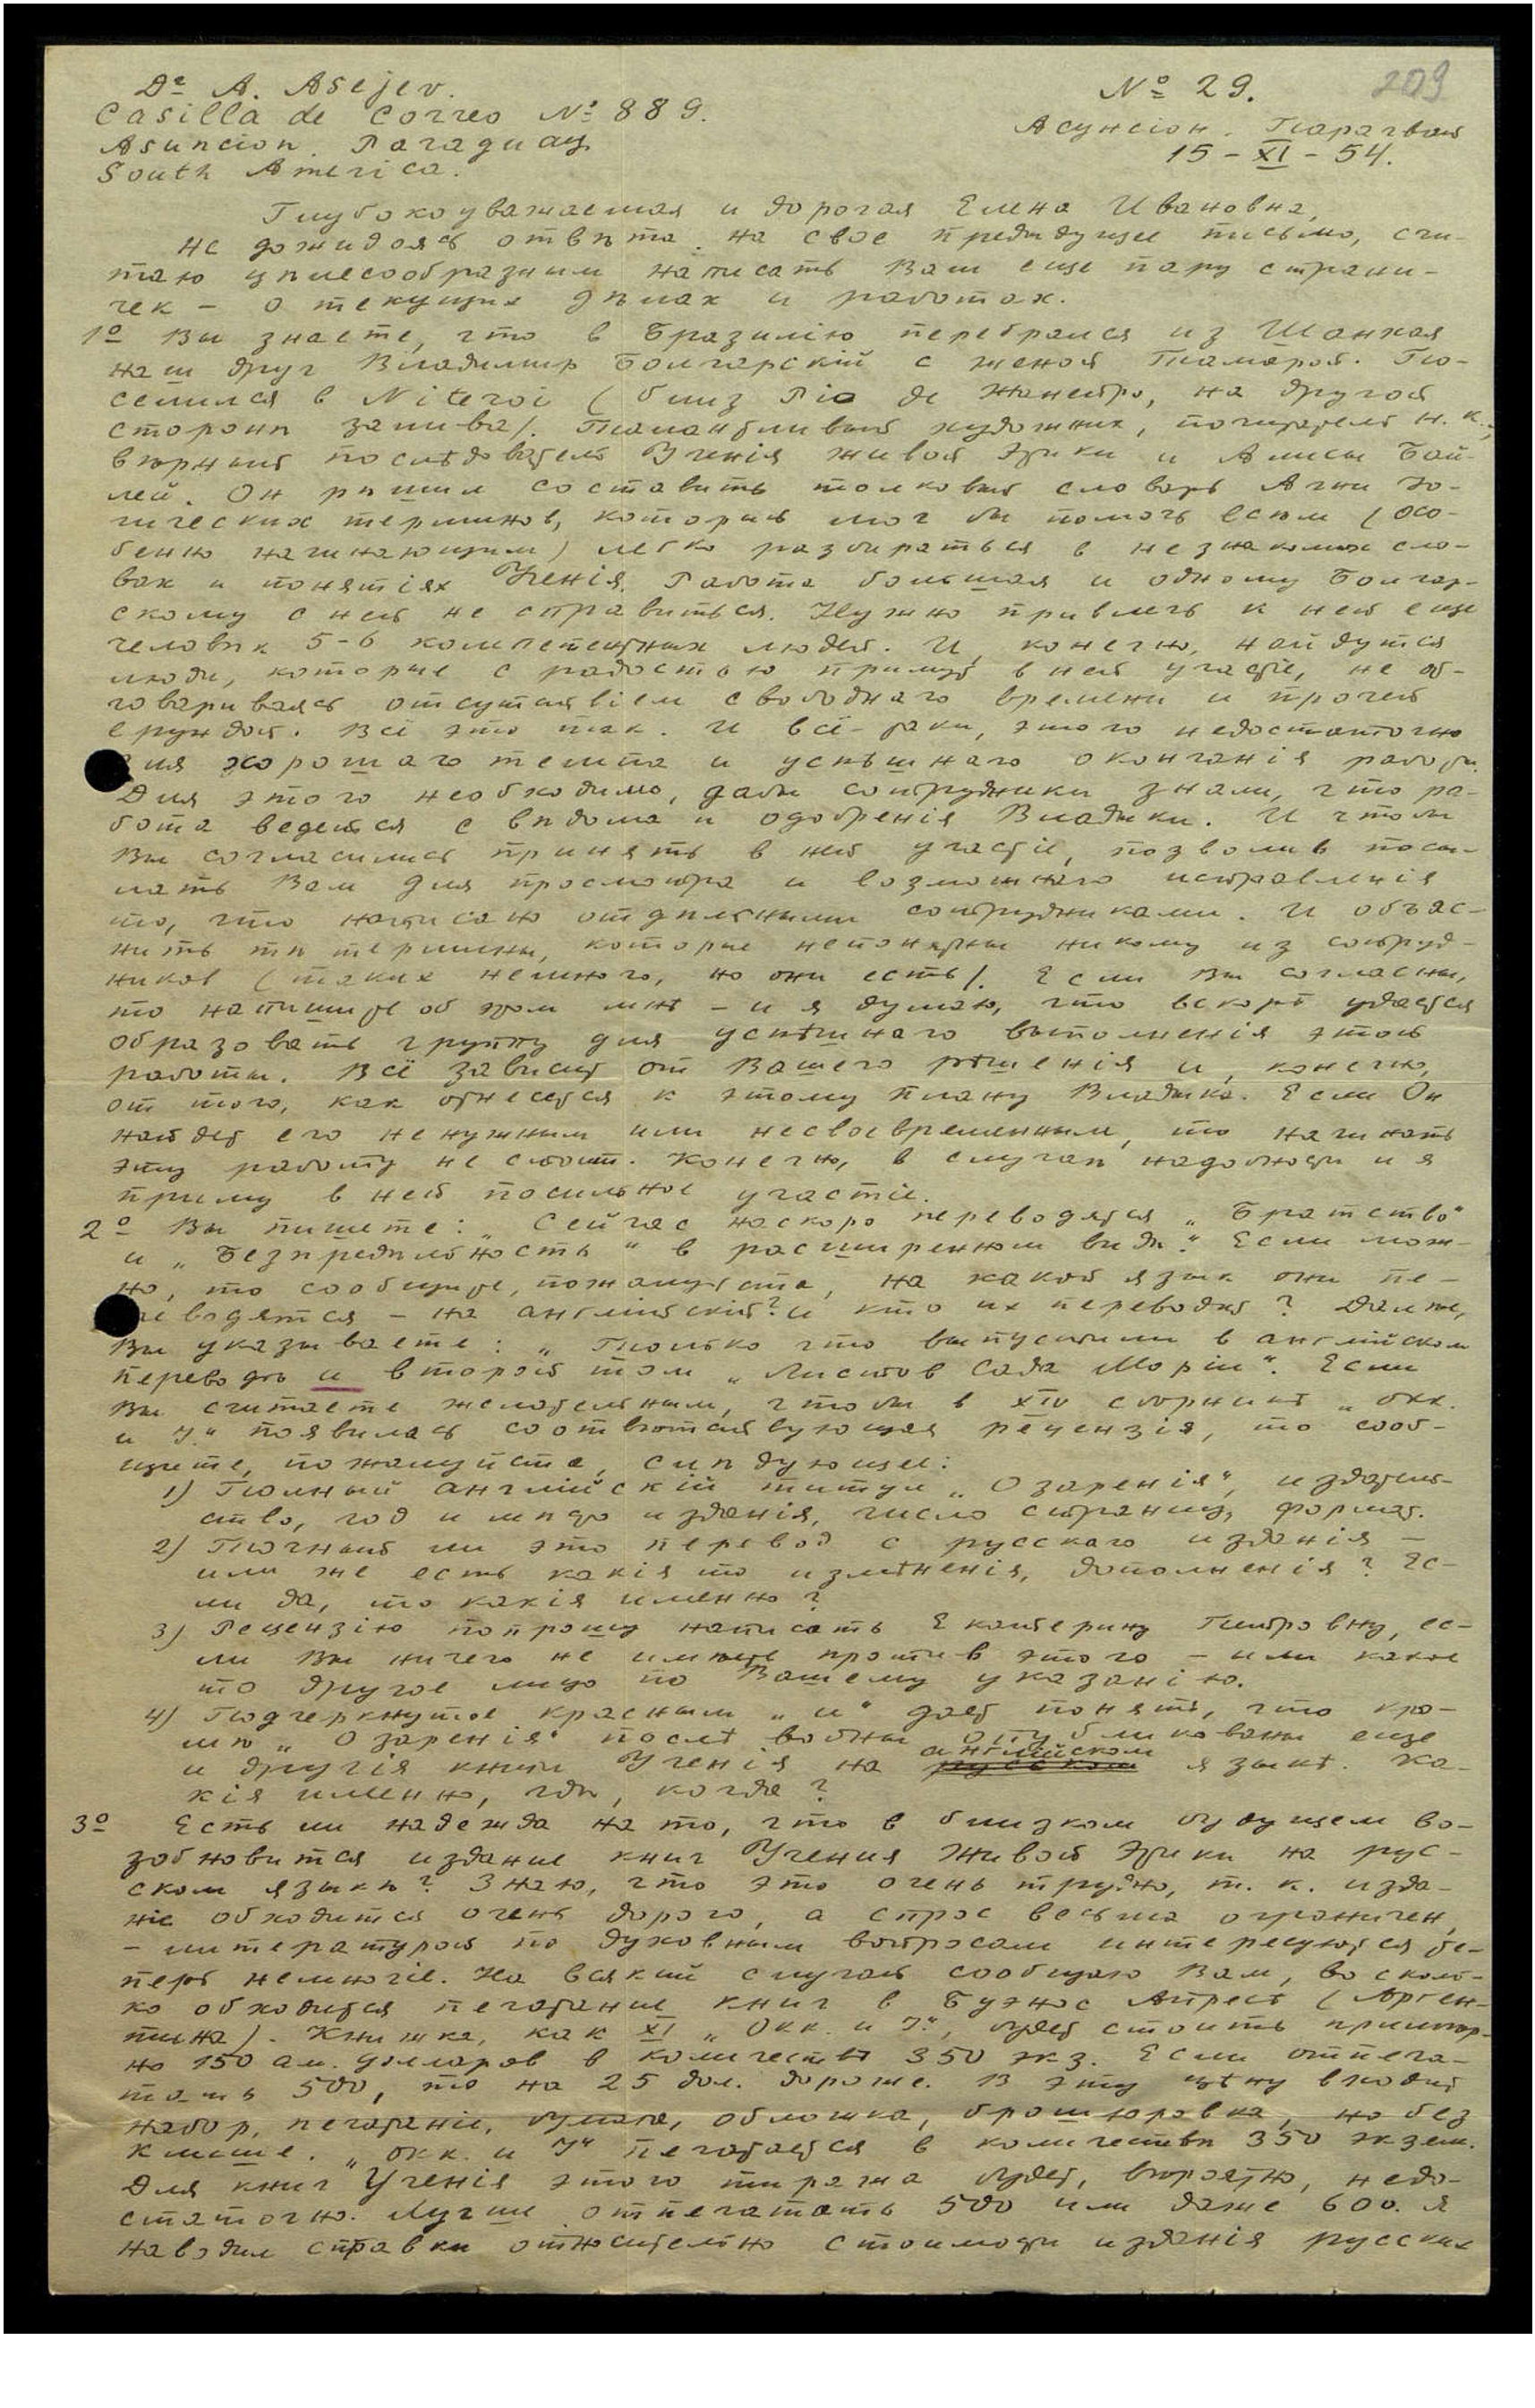 Dr A. Asejev.
Casilla de Correo № 889.
Asuncion. Paraguay
South America.
№ 29.
209
Асунсіон. Парагвай
15 - XI - 54.
Глубокоуважаемая и дорогая Елена Ивановна,
не дожидаясь отвѣта на свое предидущее письмо, счи-
таю цѣлесообразным написать Вам еще пару страни-
чек - о текущих дѣлах и работах.
1º Вы знаете, что в Бразилію перебрался из Шанхая
наш друг Владимир Болгарскій с женой Тамарой. По-
селился в Niteroi (близ Ріо де Жанейро, на другой
сторонѣ залива). Талантливый художник, почитатель Н.К.,
вѣрный послѣдователь Ученія живой Этики и Алисы Бэй-
лей. Он рѣшил составить толковый словарь Агни Іо-
гических терминов, который мог бы помочь всѣм (осо-
бенно начинающим) легко разбираться в незнакомых сло-
вах и понятіях Ученія. Работа большая и одному Болгар-
скому с ней не справиться. Нужно привлечь к ней еще
человѣк 5-6 компетентных людей. И, конечно, найдутся
люди, которые с радостью примут в ней участіе, не от-
говариваясь отсутствіем свободнаго времени и прочей
ерундой. Всё это так. И всё-таки, этого недостаточно
для хорошаго темпа и успѣшнаго окончанія работы.
Для этого необходимо, дабы сотрудники знали, что ра-
бота ведется с вѣдома и одобренія Владыки. И чтобы
Вы согласились принять в ней участіе, позволив посы-
лать Вам для просмотра и возможнаго исправленія
то, что написано отдѣльными сотрудниками. И объяс-
нить тѣ термины, которые непонятны никому из сотруд-
ников (таких немного, но они есть). Если Вы согласны,
то напишите об этом мнѣ - и я думаю, что вскорѣ удастся
образовать группу для успѣшнаго выполненія этой
работы. Всё зависит от Вашего рѣшенія и, конечно,
от того, как отнесется к этому плану Владыка. Если Он
найдет его ненужным или несвоевременным, то начинать
эту работу не стоит. Конечно, в случаѣ надобности и я
приму в ней посильное участіе.
2º Вы пишете: „Сейчас наскоро переводятся „Братство“
и „Безпредѣльность“ в расширенном видѣ.“ Если мож-
но, то сообщите, пожалуйста, на какой язык они пе-
реводятся - на англійскій? и кто их переводит? Далѣе,
Вы указываете: „Только что выпустили в англійском
переводѣ и второй том „Листов Сада Моріи“. Если
Вы считаете желательным, чтобы в XIV сборникѣ „Окк.
и І.“ появилась соотвѣтствующая рецензія, то сооб-
щите, пожалуйста, слѣдующее:
1) Полный англійскій титул „Озаренія“, издатель-
ство, год и мѣсто изданія, число страниц, формат.
2) Точный ли это перевод с русскаго изданія -
или же есть какія то измѣненія, дополненія? Ес-
ли да, то какія именно?
3) Рецензію попрошу написать Екатерину Петровну, ес-
ли Вы ничего не имѣете против этого - или какое
то другое лицо по Вашему указанію.
4) Подчеркнутое красным „и“ дает понять, что кро-
мѣ „Озаренія“ послѣ войны опубликованы еще
и другія книги Ученія на русском англійском языкѣ. Ка-
кія именно, гдѣ, когда?
3º Есть ли надежда на то, что в близком будущем во-
зобновится издание книг Учения Живой Этики на рус-
ском языкѣ? Знаю, что это очень трудно, т. к. изда-
ніе обходится очень дорого, а спрос весьма ограничен,
- литературой по духовным вопросам интересуются те-
перь немногіе. На всякий случай сообщаю Вам, во сколь-
ко обходится печатание книг в Буэнос Айресѣ (Арген-
тина). Книжка, как XI „Окк. и І.“, будет стоить примѣр-
но 150 ам. долларов в количествѣ 350 экз. Если отпеча-
тать 500, то на 25 дол. дороже. В эту цѣну входит
набор, печатаніе, бумага, обложка, брошюровка, но без
клише. „Окк. и І“ печатается в количествѣ 350 экзем.
Для книг Ученія этого тиража будет, вѣроятно, недо-
статочно. Лучше отпечатать 500 или даже 600. Я
наводил справки относительно стоимости изданія русских